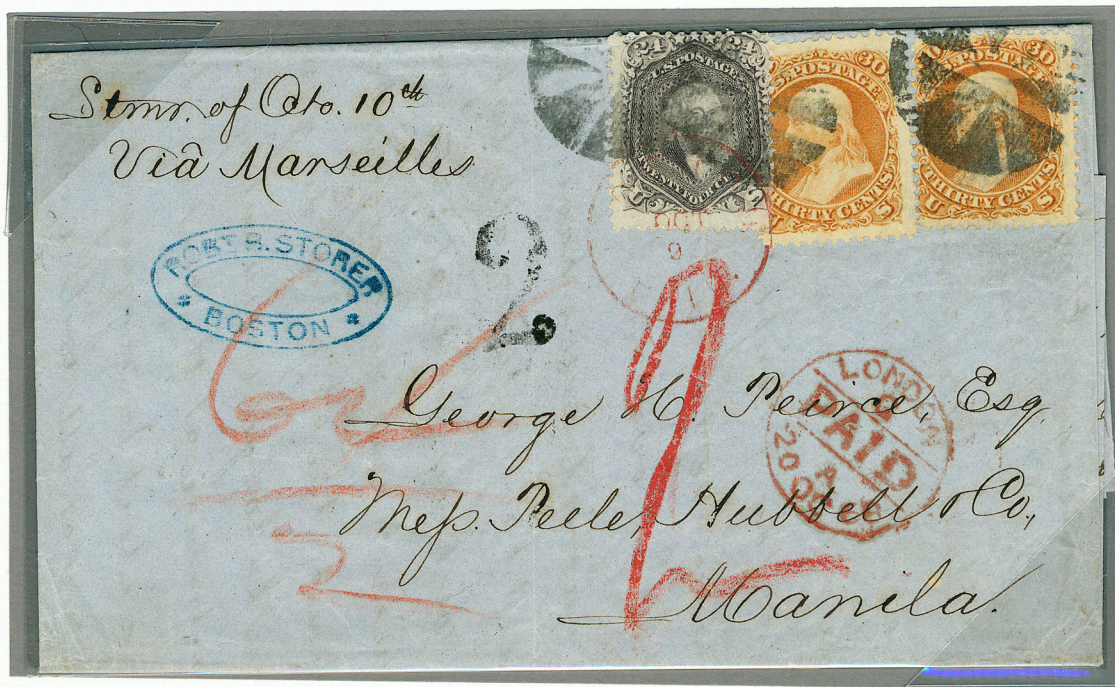 Stmr. of Octo. 10th
Viâ Marseilles
24 24
U.S. POSTAGE
TWENTY FOUR CENTS
U S
30
U.S. POSTAGE
THIRTY CENTS
U S
30
POSTAGE
THIRTY CENTS
U S
ROBT B. STORER
BOSTON
2
OCT
9
LONDON
PAID
20 OC
George H. Peirce, Esq.
Mess. Peele, Hubbell & Co.,
Manila.